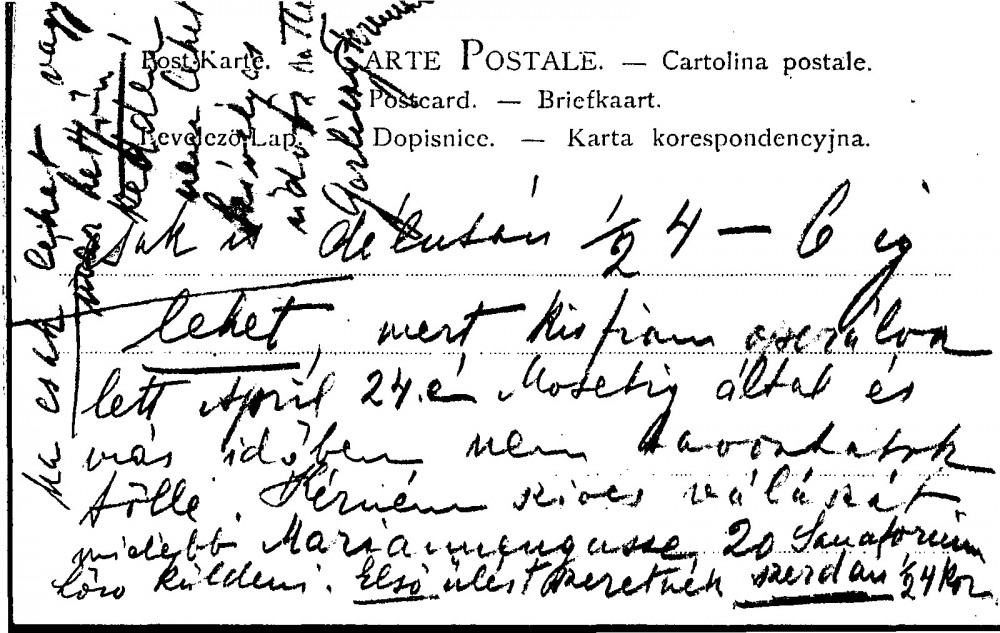 Post-Karte. CARTE POSTALE. — Cartolina postale.
Postcard. — Briefkaart.
Levelező-Lap. — Dopisnice. — Karta korespondencyjna.
is délután 1/2 4 — 6 ig
lehet, mert kisfiam operálva
lett April 24.én Mosetig által és
más időben nem távozhatok
tőlle. Kérném szives válászát
Mariannengasse 20 Sanatorium
küldeni. Első ülést szeretnék szerdán 1/2 4 kor.
ha csak lehet vagy
hettőn
kedden
nem lehet